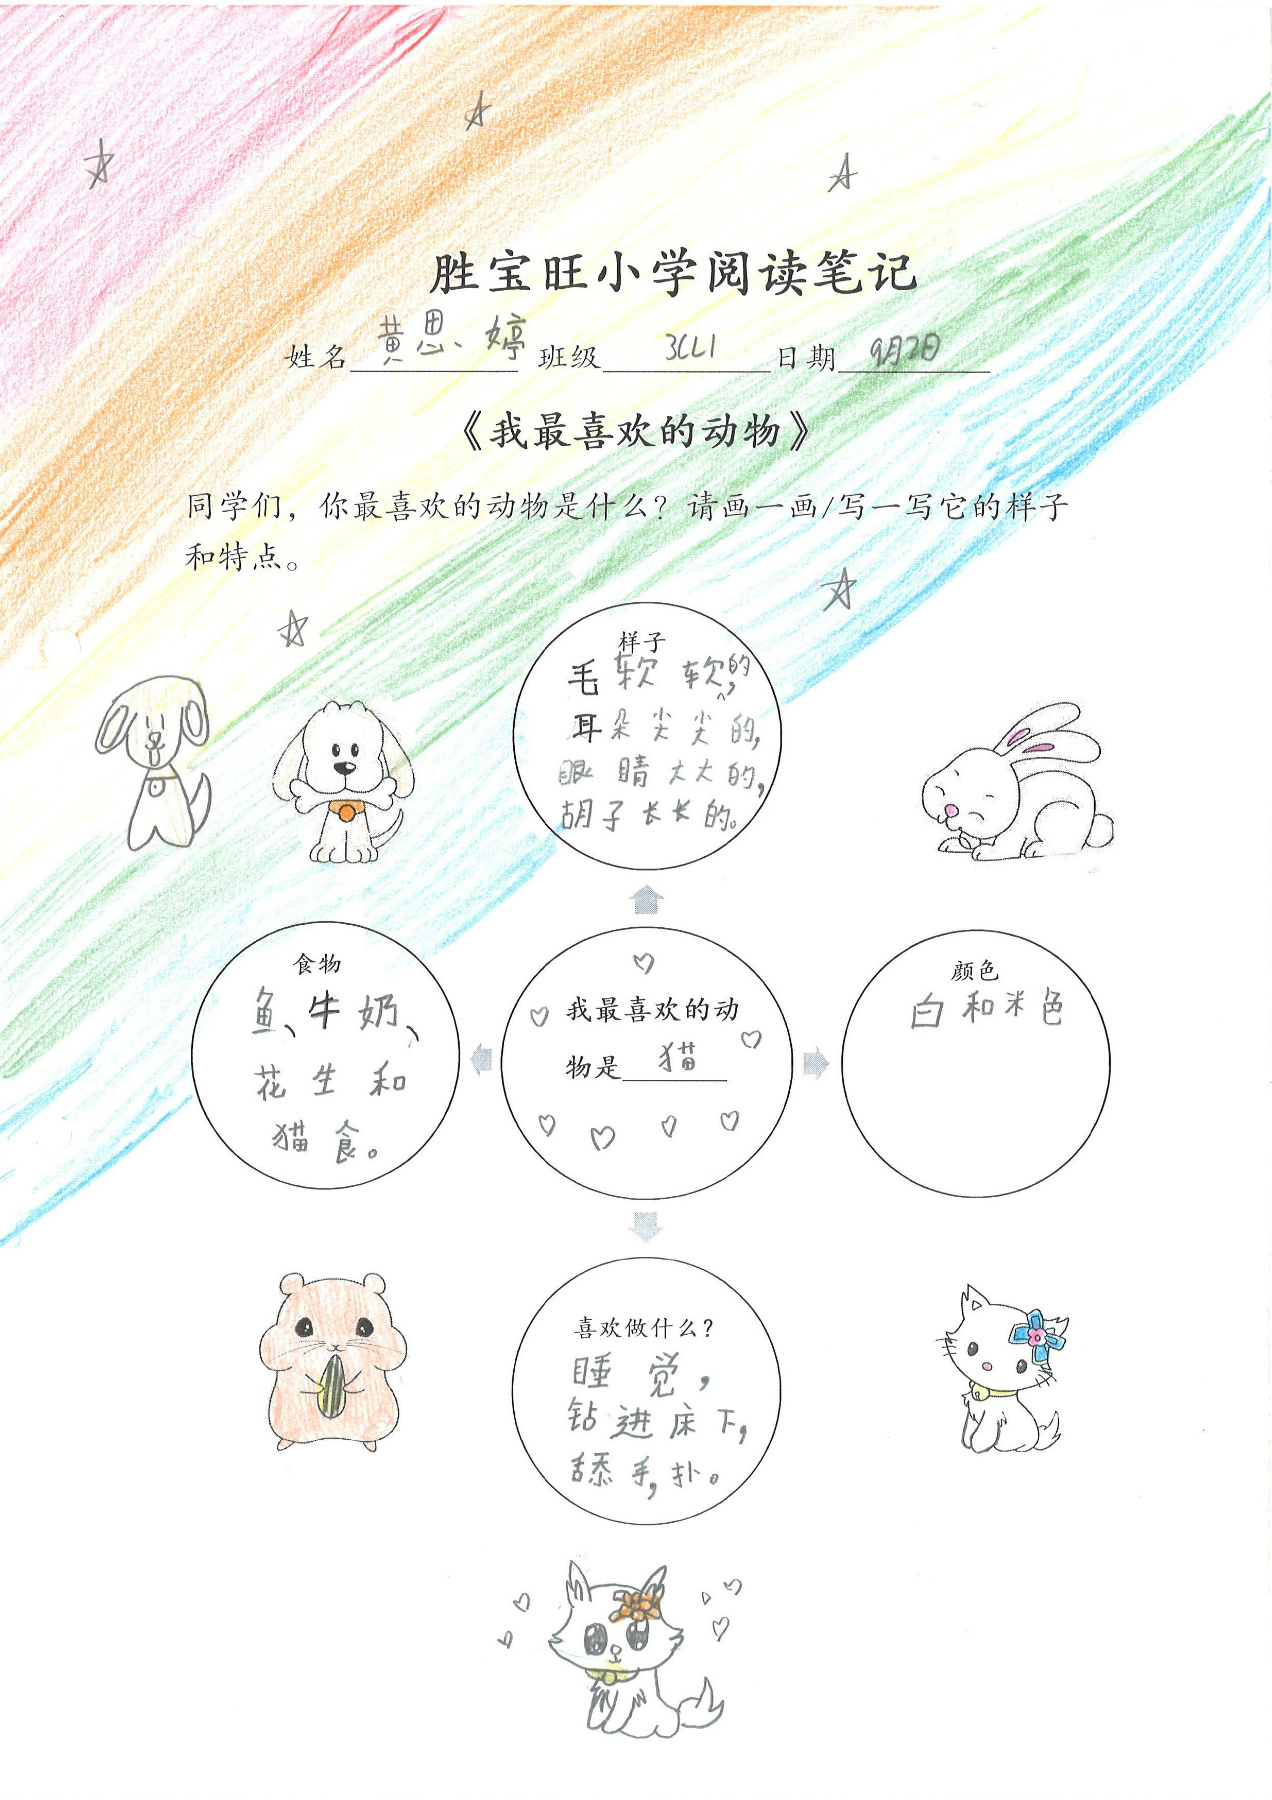 胜宝旺小学阅读笔记
姓名 黄思婷 班级 3CL1 日期 9月2日
《我最喜欢的动物》
同学们，你最喜欢的动物是什么？请画一画/写一写它的样子
和特点。
样子
毛软软的，
耳朵尖尖的，
眼睛大大的，
胡子长长的。
食物
鱼、牛奶、
花生和
猫食。
我最喜欢的动
物是 猫
颜色
白和米色
喜欢做什么？
睡觉，
钻进床下，
舔手，扑。